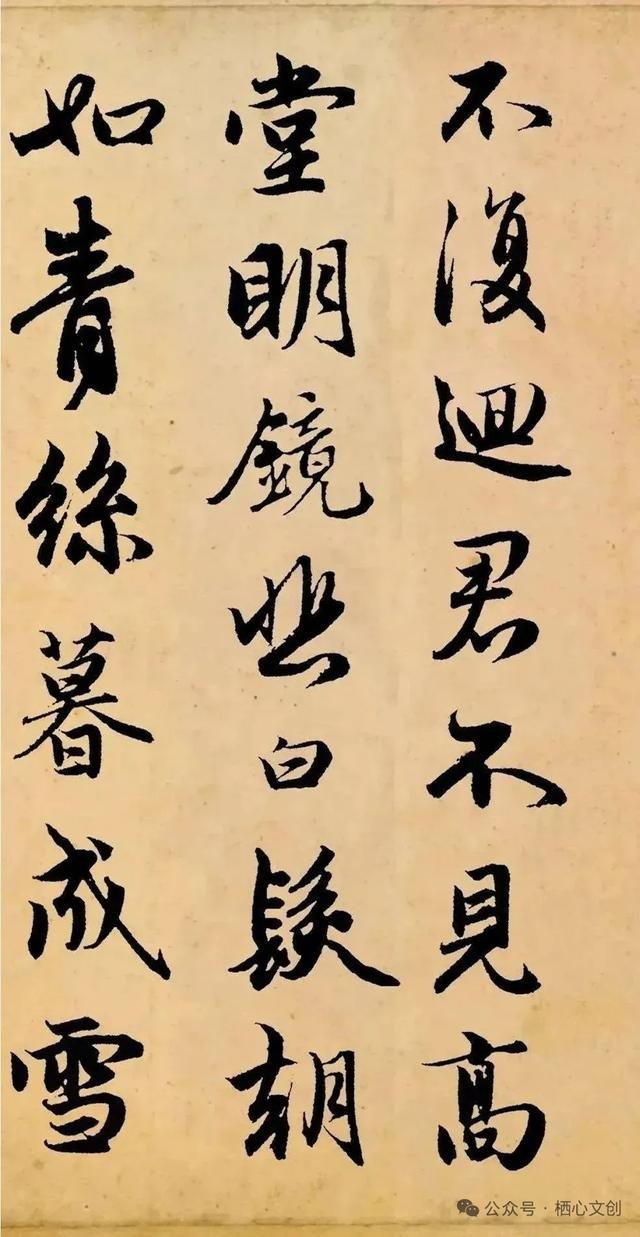 不復迴君不見高
堂明鏡悲白髮朝
如青絲暮成雪
公众号·栖心文创